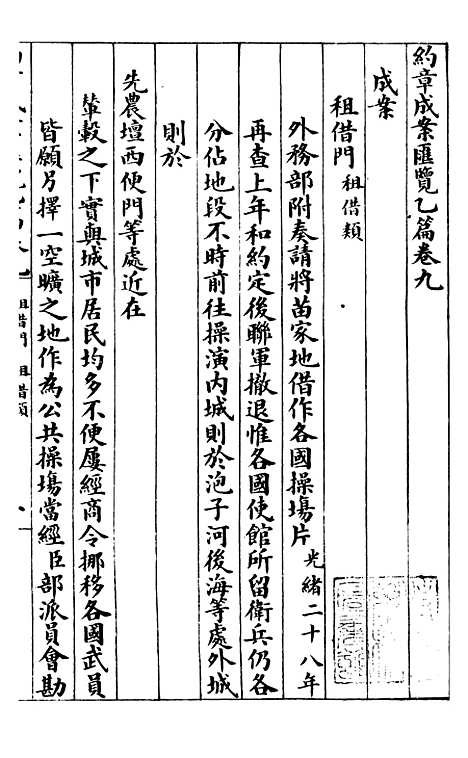 約章成案匯覽乙篇卷九
成案
租借門 租借類
外務部附奏請將苗家地借作各國操場片 光緒二十八年
再查上年和約定後聯軍撤退惟各國使館所留衛兵仍各
分佔地段不時前往操演內城則於泡子河後海等處外城
則於
先農壇西便門等處近在
輦轂之下實與城市居民均多不便屢經商令挪移各國武員
皆願另擇一空曠之地作為公共操場當經臣部派員會勘
租借門 租借類